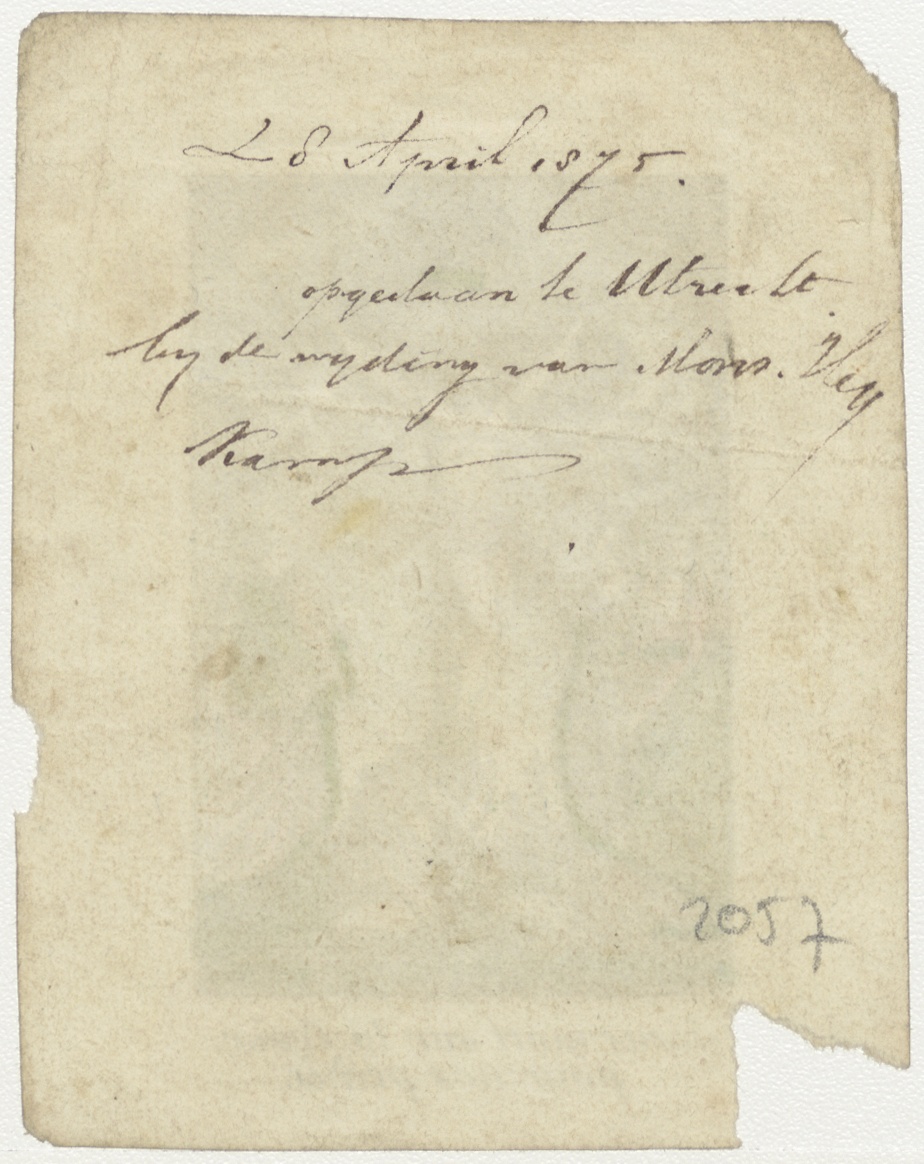 28 April 1875.
opgedaan te Utrecht
by de wyding van Mons. Hey
Kamp
2057